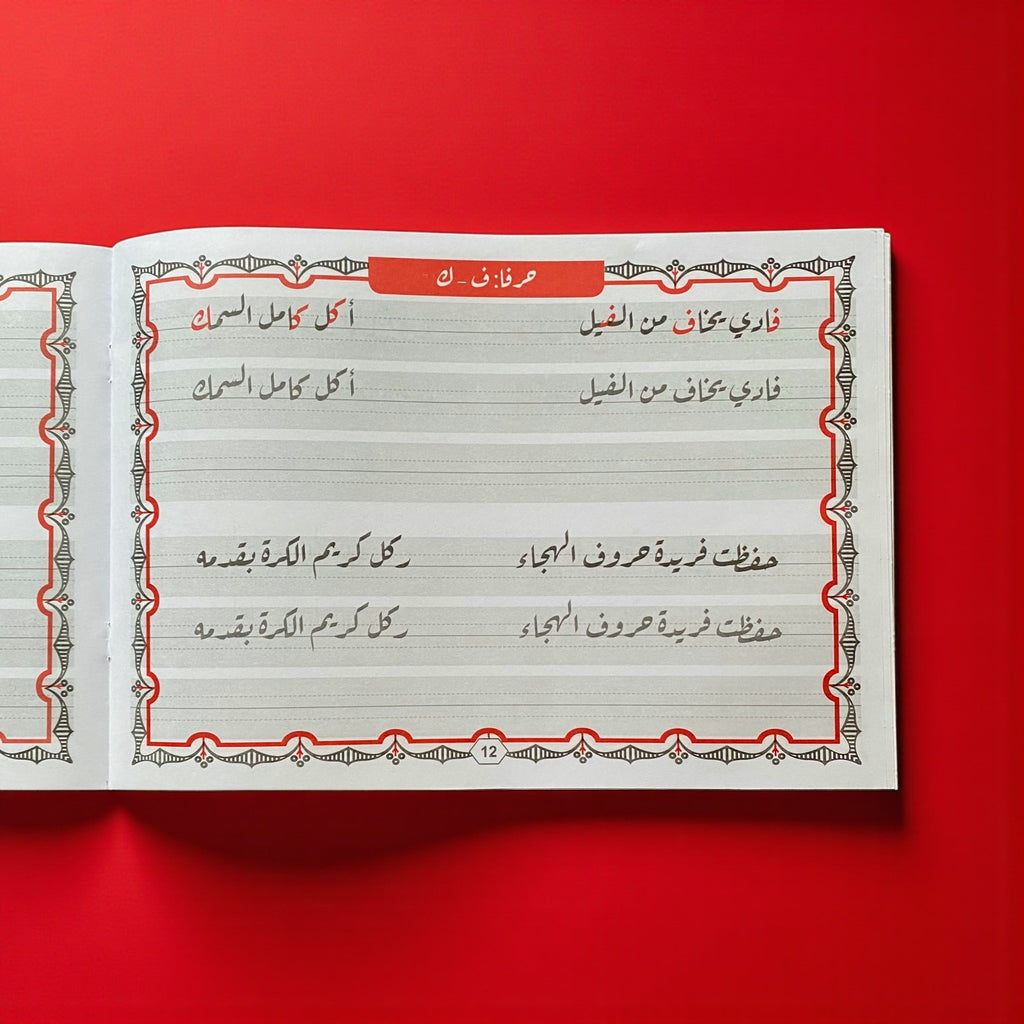 حرفا: ف - ك
فادي يخاف من الفيل أكل كامل السمك
فادي يخاف من الفيل أكل كامل السمك
حفظت فريدة حروف الهجاء ركل كريم الكرة بقدمه
حفظت فريدة حروف الهجاء ركل كريم الكرة بقدمه
12